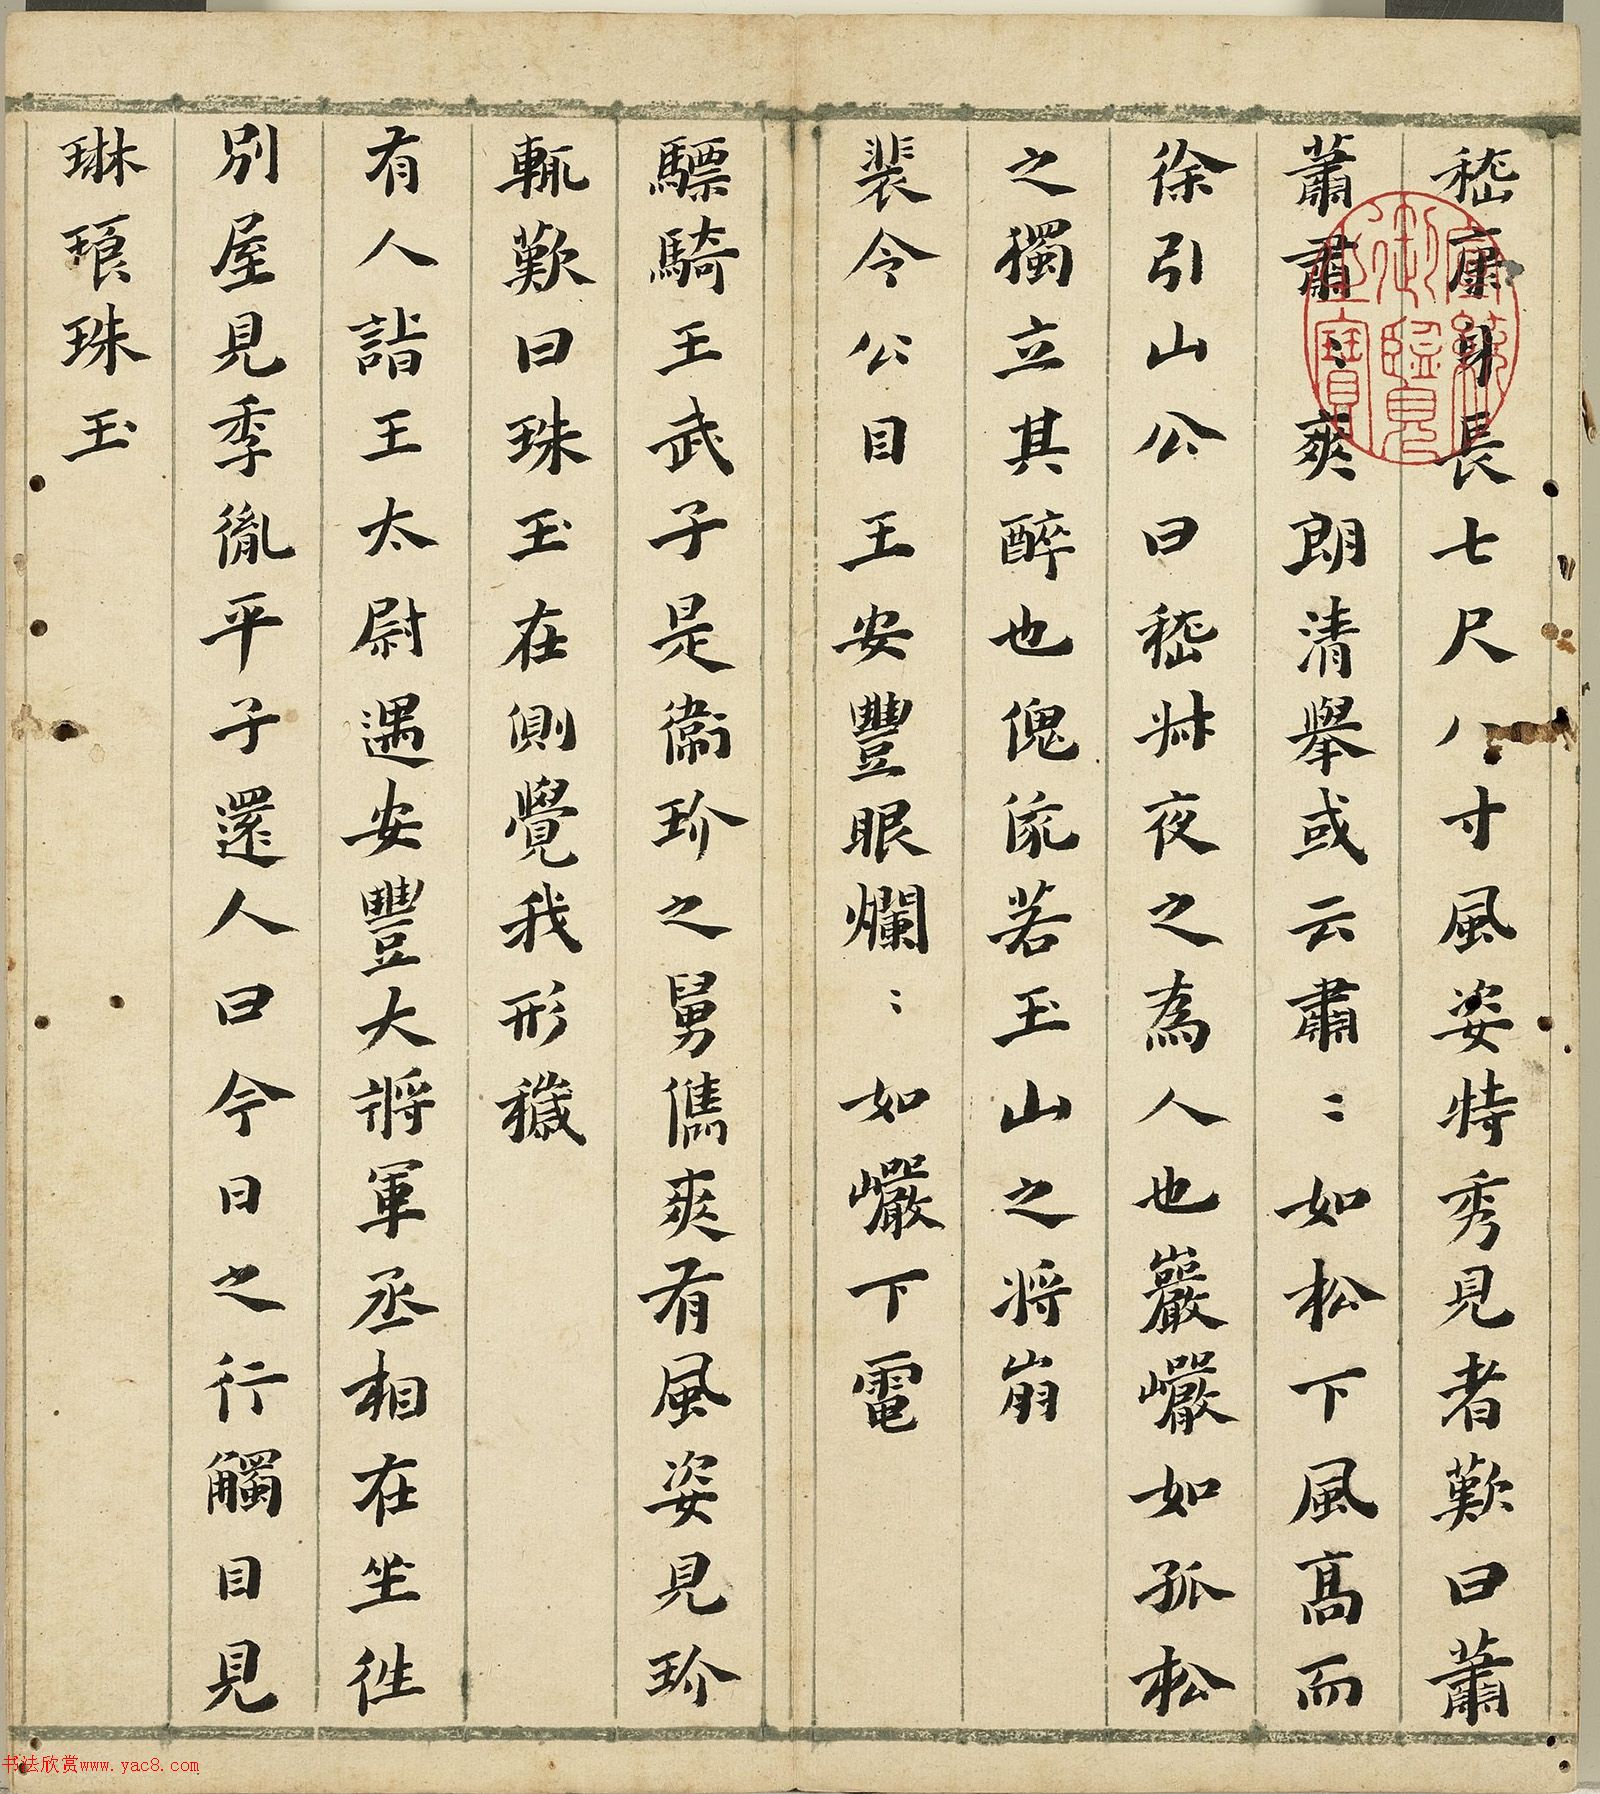 嵇康身長七尺八寸風姿特秀見者歎曰蕭
蕭肅〻爽朗清舉或云肅〻如松下風高而
徐引山公曰嵇叔夜之為人也巖巖如孤松
之獨立其醉也傀俄若玉山之将崩
裴令公目王安豐眼爛〻如巖下電
驃騎王武子是衛玠之舅儁爽有風姿見玠
輒歎曰珠玉在側覺我形穢
有人詣王太尉遇安豐大將軍丞相在坐往
別屋見季胤平子還人曰今日之行觸目見
琳琅珠玉
御覽之寶
书法欣赏www.yac8.com